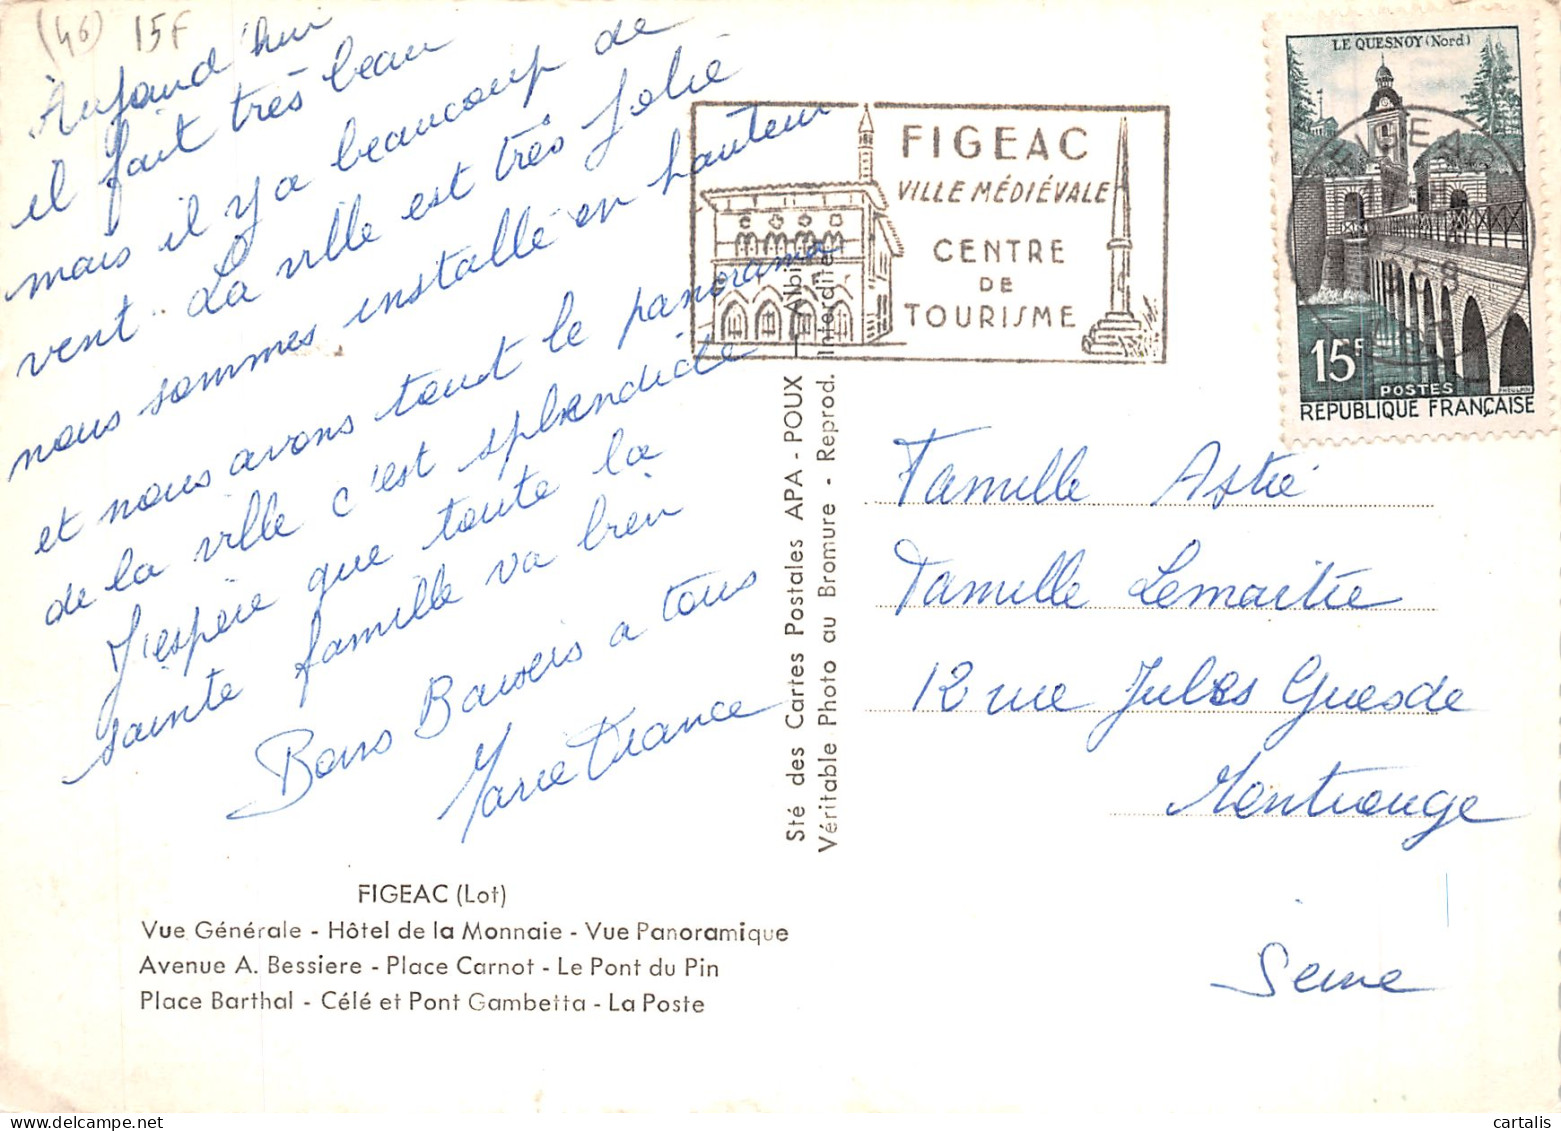 (46) 15F
Aujourd'hui
il fait très beau
mais il y a beaucoup de
vent. La ville est très jolie
nous sommes installé en hauteur
et nous avons tout le panorama
de la ville c'est splendide
J'espère que toute la
sainte famille va bien
Bons Baisers a tous
Marie France
FIGEAC (Lot)
Vue Générale - Hôtel de la Monnaie - Vue Panoramique
Avenue A. Bessiere - Place Carnot - Le Pont du Pin
Place Barthal - Célé et Pont Gambetta - La Poste
Sté des Cartes Postales APA - POUX - Albi
Véritable Photo au Bromure - Reprod. Interdite
FIGEAC
VILLE MÉDIÉVALE
CENTRE
DE
TOURISME
LE QUESNOY (Nord)
FIGEAC
1958
LOT
15F
POSTES
RÉPUBLIQUE FRANÇAISE
Famille Astié
Famille Lemaitre
12 rue Jules Guesde
Montrouge
Seine
cartalis